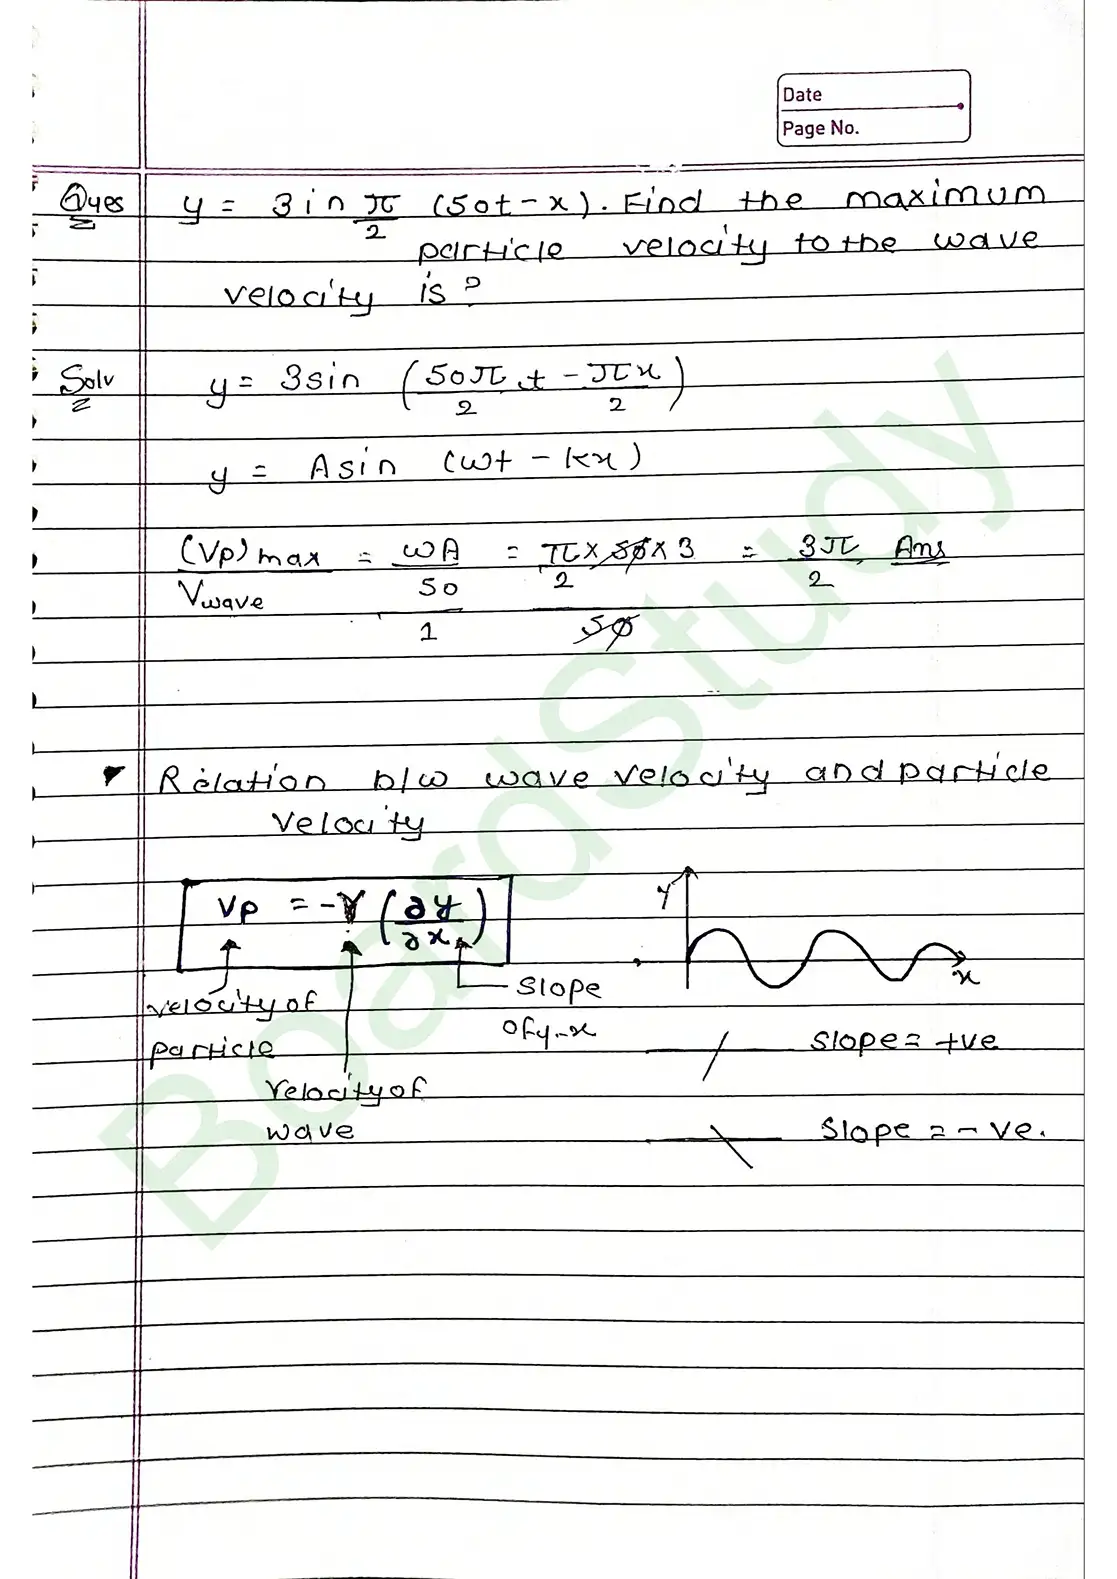 Date
Page No.
Ques y = 3in π/2 (50t - x). Find the maximum
particle velocity to the wave
velocity is?
Solv y = 3sin (50π/2 t - πx/2)
y = Asin (ωt - kx)
(Vp)max/Vwave = ωA/50/1 = π/2 × 50 × 3/50 = 3π/2 Ans
Relation b/w wave velocity and particle
velocity
Vp = -V (∂y/∂x)
y
x
velocity of
particle
Slope
of y-x
Velocity of
wave
Slope = +ve
Slope = -ve.
BoardStudy